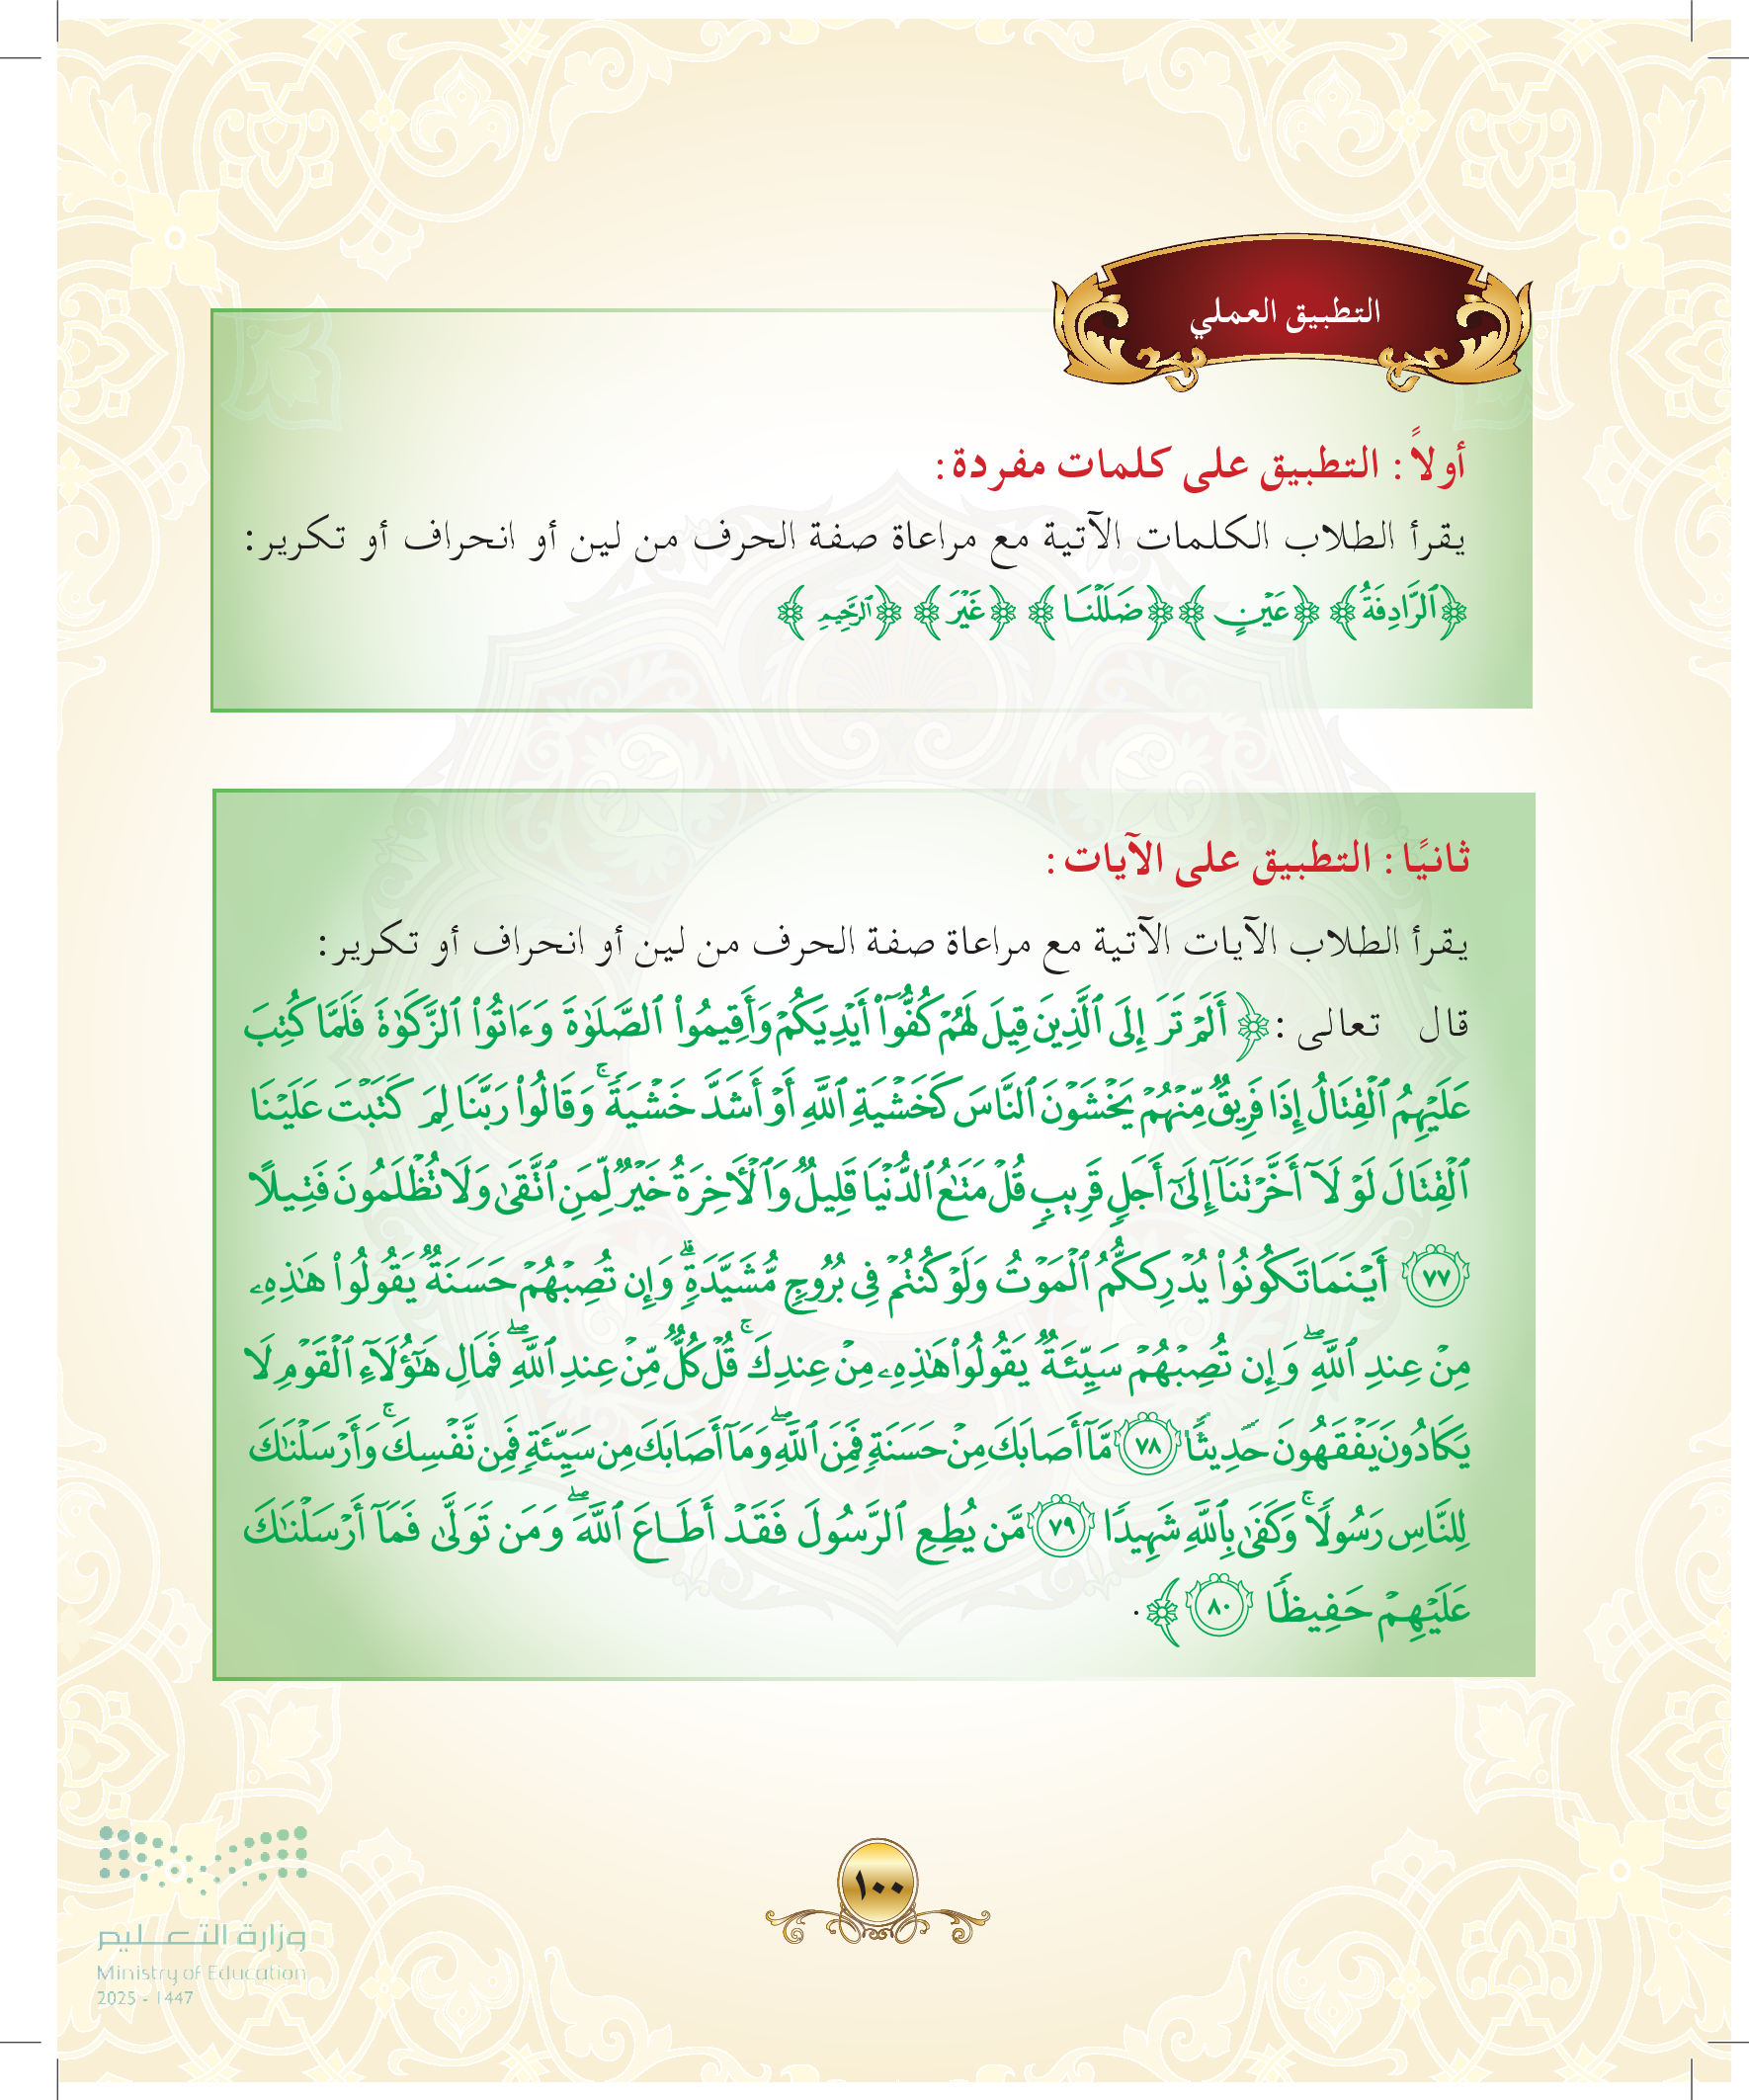 التطبيق العملي
أولاً : التطبيق على كلمات مفردة :
يقرأ الطلاب الكلمات الآتية مع مراعاة صفة الحرف من لين أو انحراف أو تكرير :
﴿ٱلرَّادِفَةُ﴾ ﴿عَيۡنٍ﴾ ﴿ضَلَلۡنَا﴾ ﴿غَيۡرَ﴾ ﴿ٱلرَّحِيمِ﴾
ثانيًا : التطبيق على الآيات :
يقرأ الطلاب الآيات الآتية مع مراعاة صفة الحرف من لين أو انحراف أو تكرير :
قال تعالى : ﴿ أَلَمۡ تَرَ إِلَى ٱلَّذِينَ قِيلَ لَهُمۡ كُفُّوٓاْ أَيۡدِيَكُمۡ وَأَقِيمُواْ ٱلصَّلَوٰةَ وَءَاتُواْ ٱلزَّكَوٰةَ فَلَمَّا كُتِبَ
عَلَيۡهِمُ ٱلۡقِتَالُ إِذَا فَرِيقٞ مِّنۡهُمۡ يَخۡشَوۡنَ ٱلنَّاسَ كَخَشۡيَةِ ٱللَّهِ أَوۡ أَشَدَّ خَشۡيَةٗۚ وَقَالُواْ رَبَّنَا لِمَ كَتَبۡتَ عَلَيۡنَا
ٱلۡقِتَالَ لَوۡ لَآ أَخَّرۡتَنَآ إِلَىٰٓ أَجَلٖ قَرِيبٖ قُلۡ مَتَٰعُ ٱلدُّنۡيَا قَلِيلٞ وَٱلۡأٓخِرَةُ خَيۡرٞ لِّمَنِ ٱتَّقَىٰ وَلَا تُظۡلَمُونَ فَتِيلًا
٧٧ أَيۡنَمَا تَكُونُواْ يُدۡرِككُّمُ ٱلۡمَوۡتُ وَلَوۡ كُنتُمۡ فِي بُرُوجٖ مُّشَيَّدَةٖۗ وَإِن تُصِبۡهُمۡ حَسَنَةٞ يَقُولُواْ هَٰذِهِۦ
مِنۡ عِندِ ٱللَّهِۖ وَإِن تُصِبۡهُمۡ سَيِّئَةٞ يَقُولُواْ هَٰذِهِۦ مِنۡ عِندِكَۚ قُلۡ كُلّٞ مِّنۡ عِندِ ٱللَّهِۖ فَمَالِ هَٰٓؤُلَآءِ ٱلۡقَوۡمِ لَا
يَكَادُونَ يَفۡقَهُونَ حَدِيثٗا ٧٨ مَّآ أَصَابَكَ مِنۡ حَسَنَةٖ فَمِنَ ٱللَّهِۖ وَمَآ أَصَابَكَ مِن سَيِّئَةٖ فَمِن نَّفۡسِكَۚ وَأَرۡسَلۡنَٰكَ
لِلنَّاسِ رَسُولٗاۚ وَكَفَىٰ بِٱللَّهِ شَهِيدٗا ٧٩ مَّن يُطِعِ ٱلرَّسُولَ فَقَدۡ أَطَاعَ ٱللَّهَۖ وَمَن تَوَلَّىٰ فَمَآ أَرۡسَلۡنَٰكَ
عَلَيۡهِمۡ حَفِيظٗا ٨٠ ﴾ .
١٠٠
وزارة التعليم
Ministry of Education
2025 - 1447